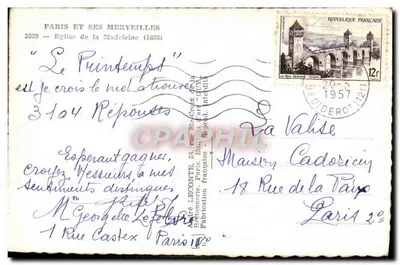 PARIS ET SES MERVEILLES
Eglise de la Madeleine
"Le Printemps"
est je crois le mot à trouver
3104 Réponses
Esperant gagner,
Croyez, Messieurs, à mes
sentiments distingués
Mme
Georgette
1 Rue Castex Paris IVe
André LECONTE, 38, rue Ste-Croix-de-la
Bretonnerie, Paris.
Fabrication française - Reprod. interdite
REPUBLIQUE FRANÇAISE
12F
1957
R. DIDEROT (12e)
La Valise
Maison Cadoricin
18 Rue de la Paix
Paris 2e
CPARAMA.COM